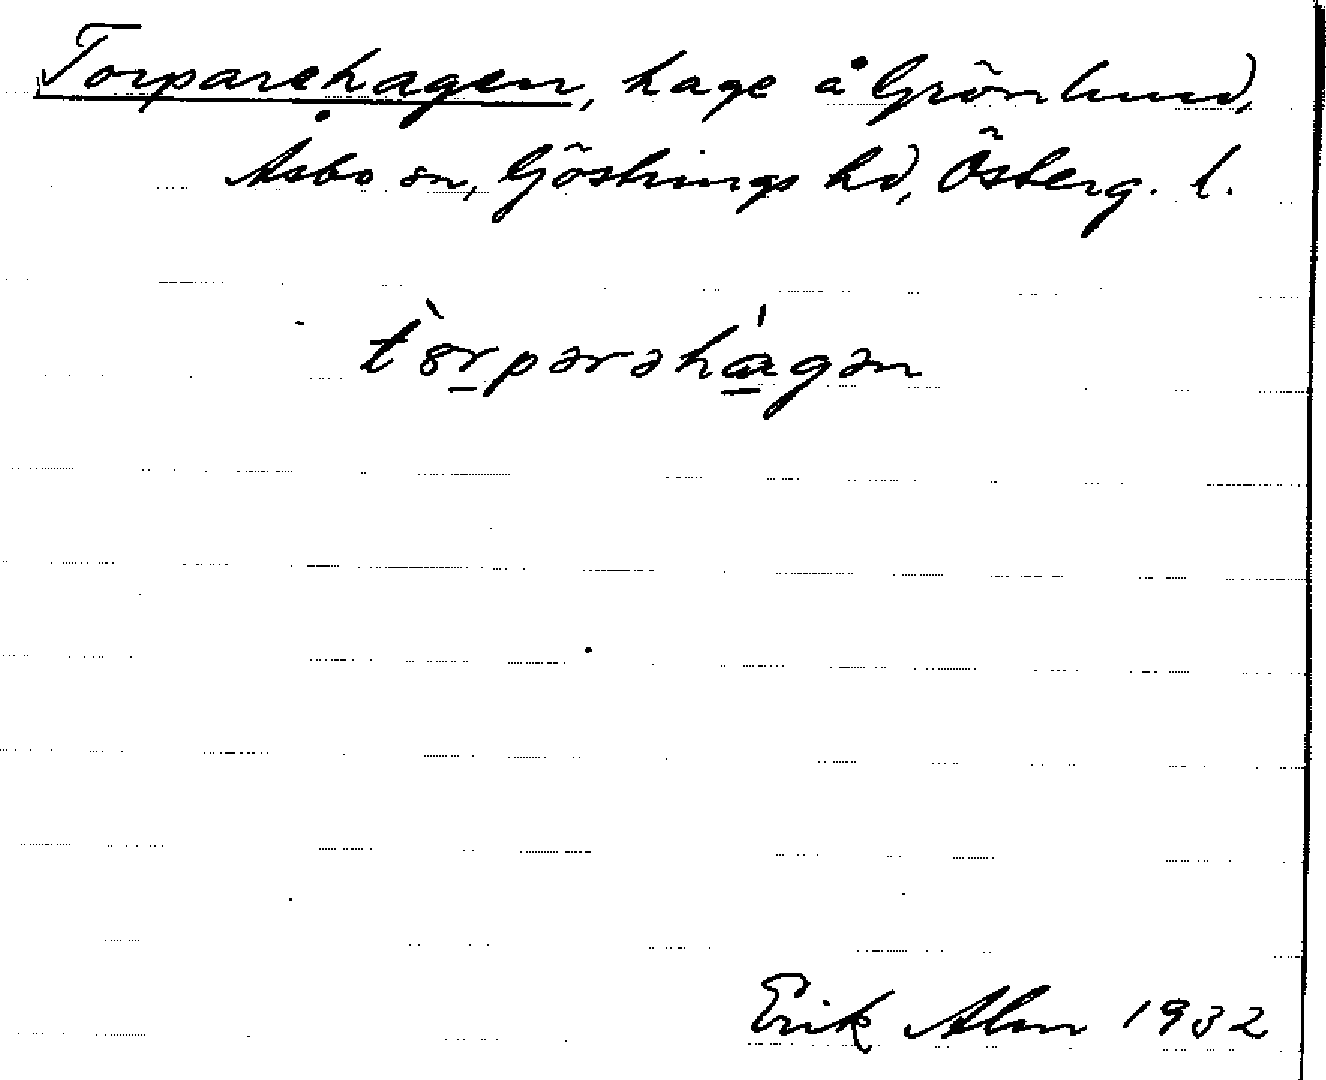 Torparehagen, hage å Grönlund,
Åsbo sn, Göstrings hd, Österg. l.
tòrparəhágən
Erik Alm 1932